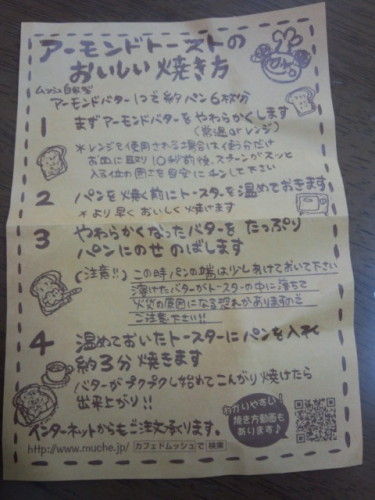 アーモンドトーストの
おいしい焼き方
ムッシュ自家製
アーモンドバター1つで約パン6枚分
1 まずアーモンドバターをやわらかくします
(常温orレンジ)
*レンジを使用される場合は1枚分だけ
お皿に取り10秒前後、スプーンがスッと
入る位の固さを目安にして下さい
2 パンを焼く前にトースターを温めておきます
*より早くおいしく焼けます
3 やわらかくなったバターをたっぷり
パンにのせのばします
(注意!!) この時パンの端は少しあけておいて下さい
溶けたバターがトースターの中に落ちて
火災の原因になる恐れがありますので
ご注意下さい!!
4 温めておいたトースターにパンを入れ
約3分焼きます
バターがプクプクし始めてこんがり焼けたら
出来上がり!!
わかりやすい!
焼き方動画も
あります♪
インターネットからもご注文承ります。
http://www.muche.jp/ カフェドムッシュで 検索